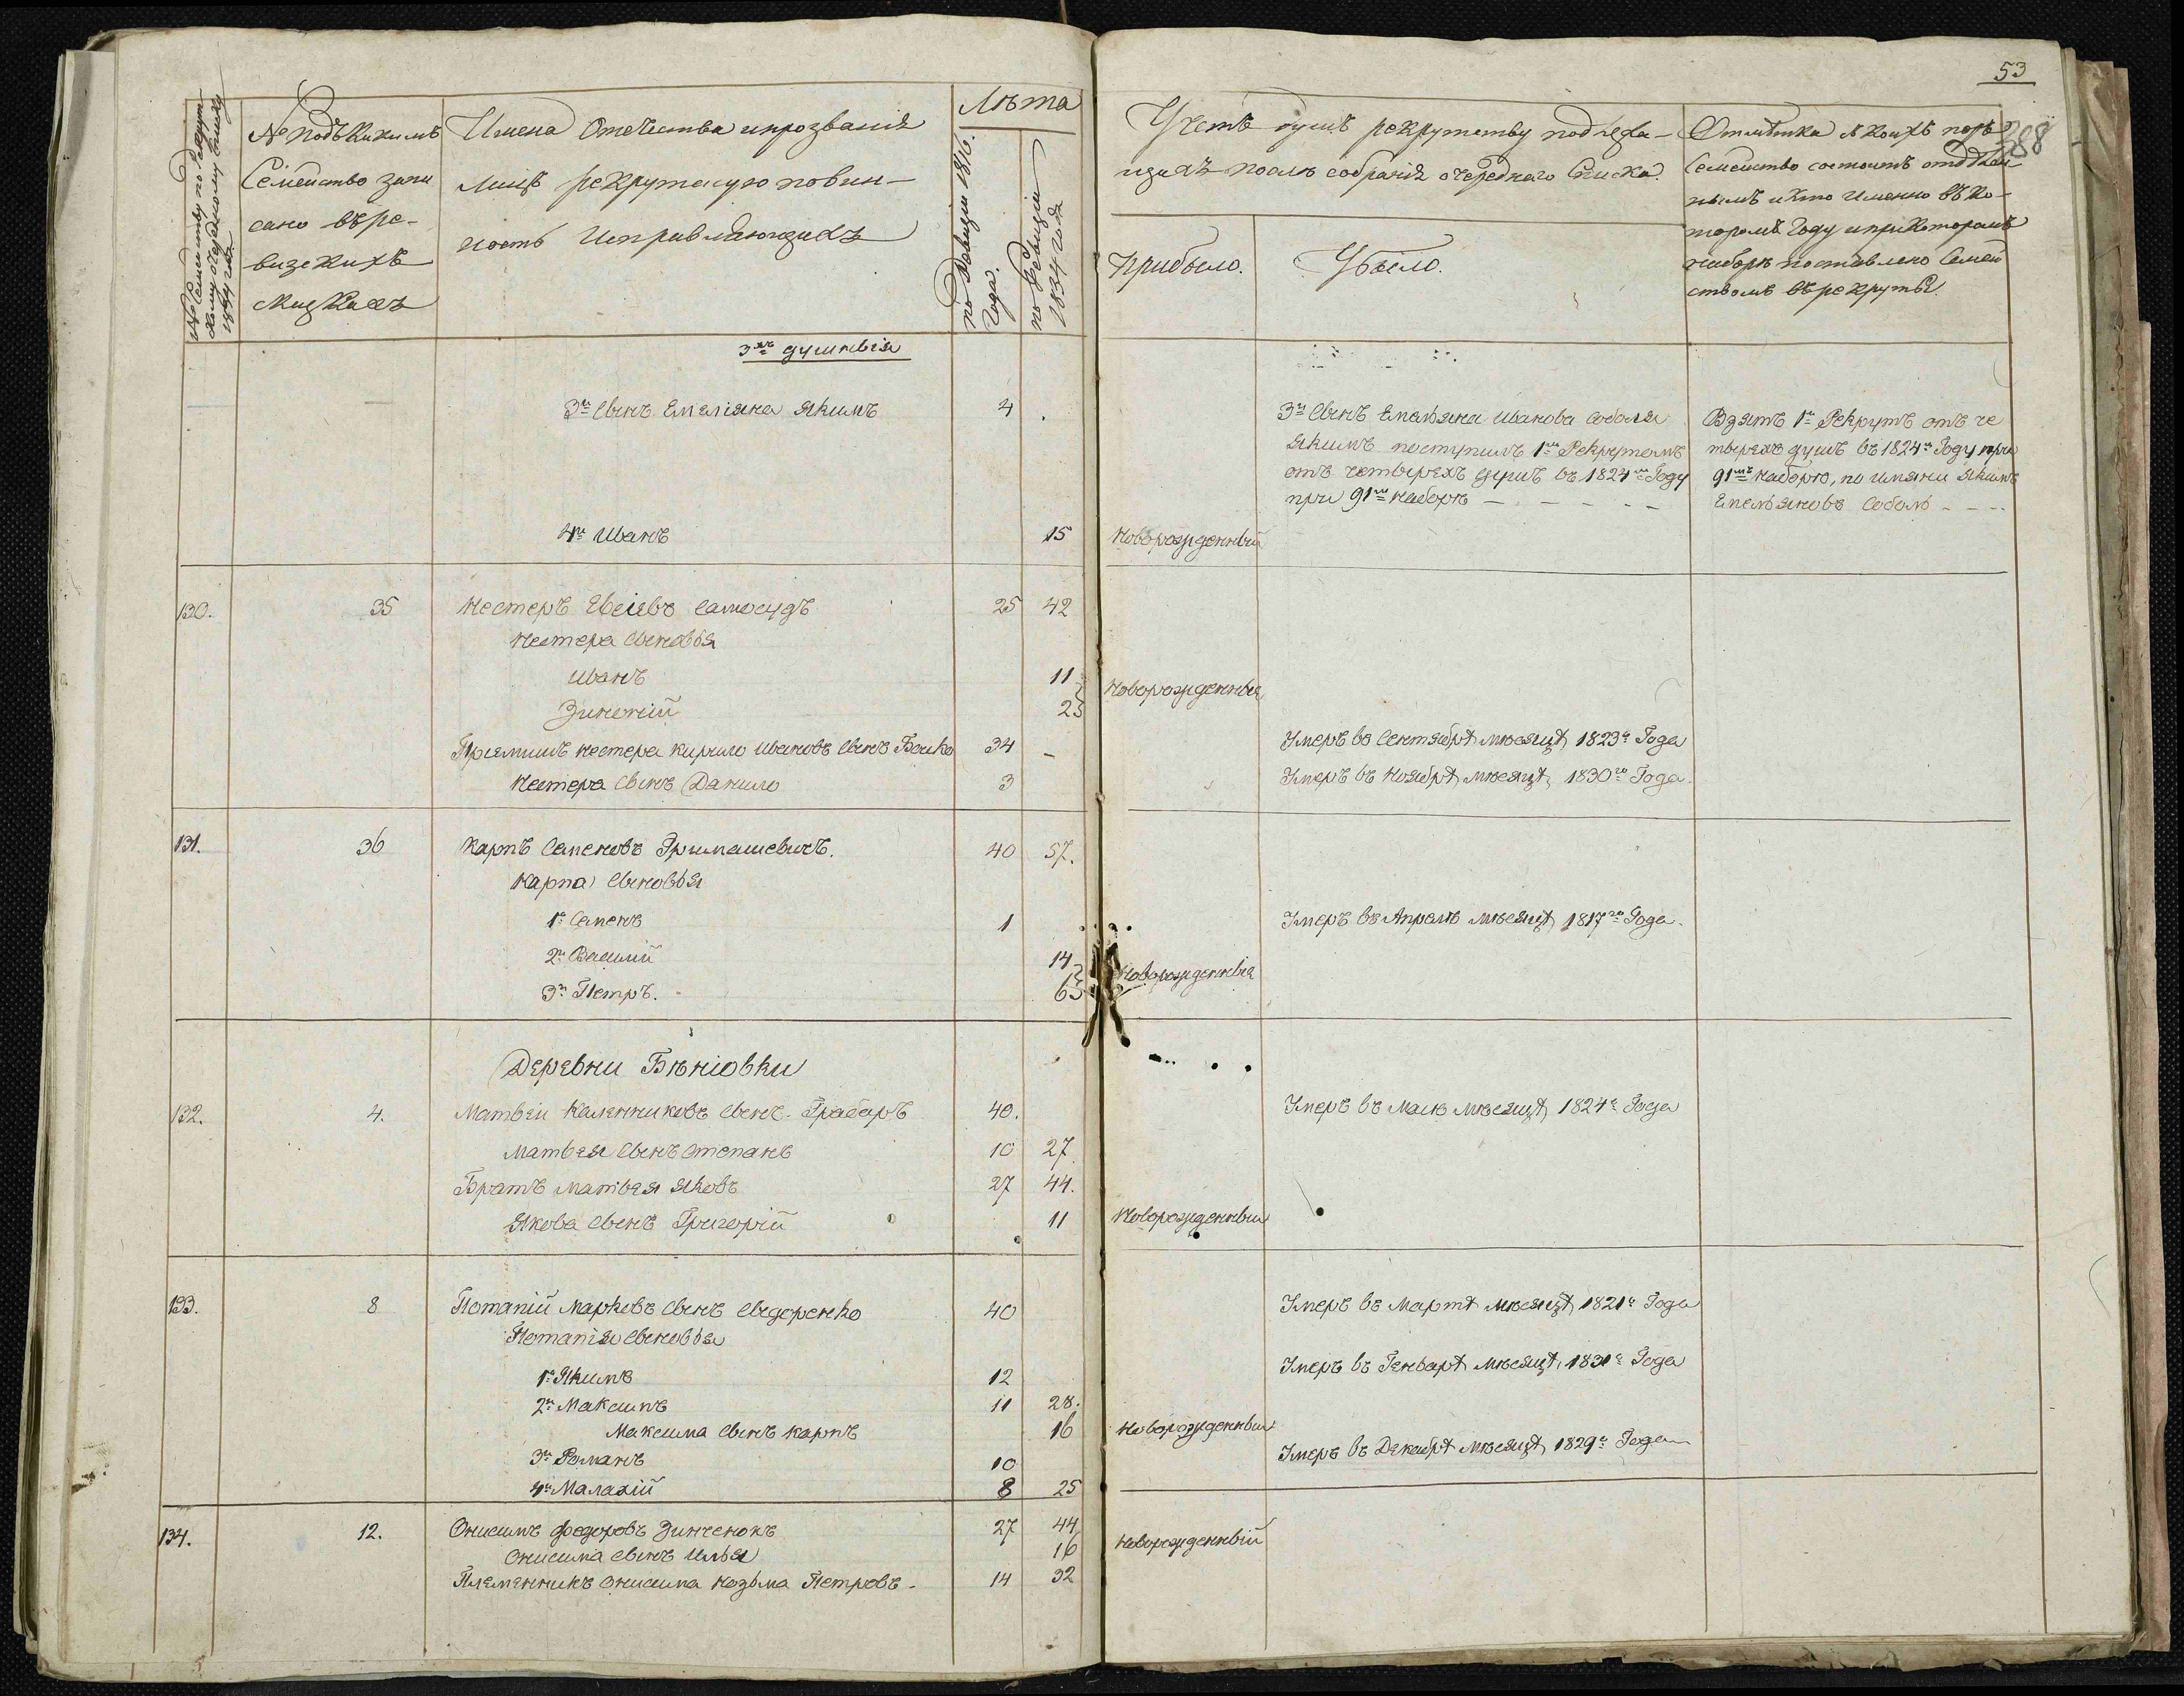 53
388
№ Семейству по рекрут-
скому очередному списку
№ подъ какимъ
Семейство запи
сано въ ре-
визскихъ
сказкахъ
Имена Отечества и прозванія
лицъ рекрутскую повин-
ность Исправляющихъ
Лѣта
по Ревизіи 1816.
Года.
по Ревизіи
1834 года
Учетъ душъ рекрутству подлежа-
щихъ послѣ собранія очереднаго Списка.
Прибыло.
Убыло.
Отмѣтка въ коихъ
Семейство состоитъ
нымъ и кто Именно въ ко-
торомъ Году и при которомъ
наборѣ поставлено Семей
ствомъ въ рекруты.
3хъ душныя
3й Сынъ Емеліяна Якимъ 4
3й Сынъ Емельяна Иванова Соболя
Якимъ поступилъ 1мъ Рекрутомъ
отъ четырехъ душъ въ 1824мъ Году
при 91мъ наборѣ - - - - -
Взятъ 1й Рекрутъ отъ че
тырехъ душъ въ 1824м Году при
91мъ наборѣ, по имяни Якимъ
Емельяновъ Соболь - - -
4й Иванъ 15 Новорожденный
130. 35 Нестеръ Евсіевъ Самосудъ 25 42
Нестера Сыновья
Иванъ 11
Новорожденныя
Зиновій 2
Пріемышъ Нестера Кирило Ивановъ Сынъ Бойко 34 - Умеръ въ Сентябрѣ мѣсяцѣ 1823г Года
Нестера Сынъ Данило 3 Умеръ въ Ноябрѣ мѣсяцѣ 1830го Года.
131. 36 Карпъ Семеновъ Гримашевичъ. 40 57.
Карпа Сыновья
1й Семенъ 1 Умеръ въ Апрелѣ мѣсяцѣ 1817го Года.
2й Василій 14
Новорожденныя
3й Петръ. 6
Деревни Бѣніовки
132. 4. Матвѣй Каленниковъ Сынъ Грабаръ 40. Умеръ въ Маіѣ мѣсяцѣ 1824г Года
Матвея Сынъ Степанъ 10 27
Братъ Матвея Яковъ 27 44.
Якова Сынъ Григорій 11 Новорожденный
133. 8 Потапій Марковъ Сынъ Сидоренко 40 Умеръ въ Мартѣ мѣсяцѣ 1821г Года
Потапія Сыновья
1й Якимъ 12 Умеръ въ Генварѣ мѣсяцѣ 1831г Года
2й Максимъ 11 28.
Максима Сынъ Карпъ 16 Новорожденный
3й Романъ 10 Умеръ въ Декабрѣ мѣсяцѣ 1829г Года
4й Малахій 8 25
134. 12. Онисимъ Федоровъ Зинченокъ 27 44
Онисима Сынъ Илья 16 Новорожденный
Племянникъ Онисима Козьма Петровъ - 14 32